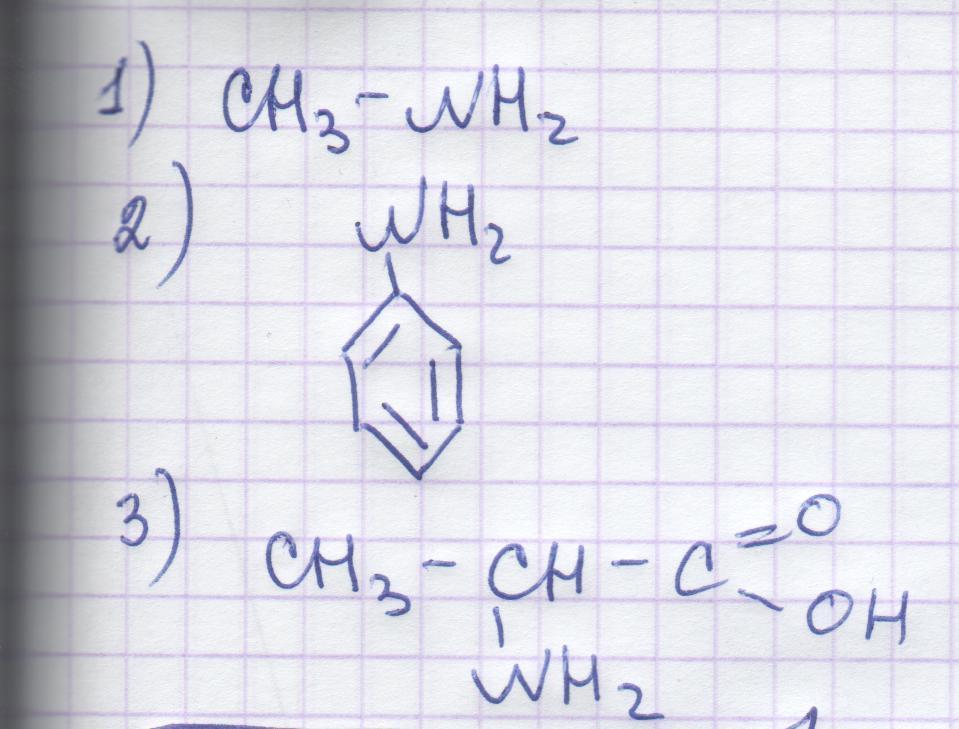 1) CH3 - NH2
2) NH2
3) CH3 - CH - C =O
- OH
NH2